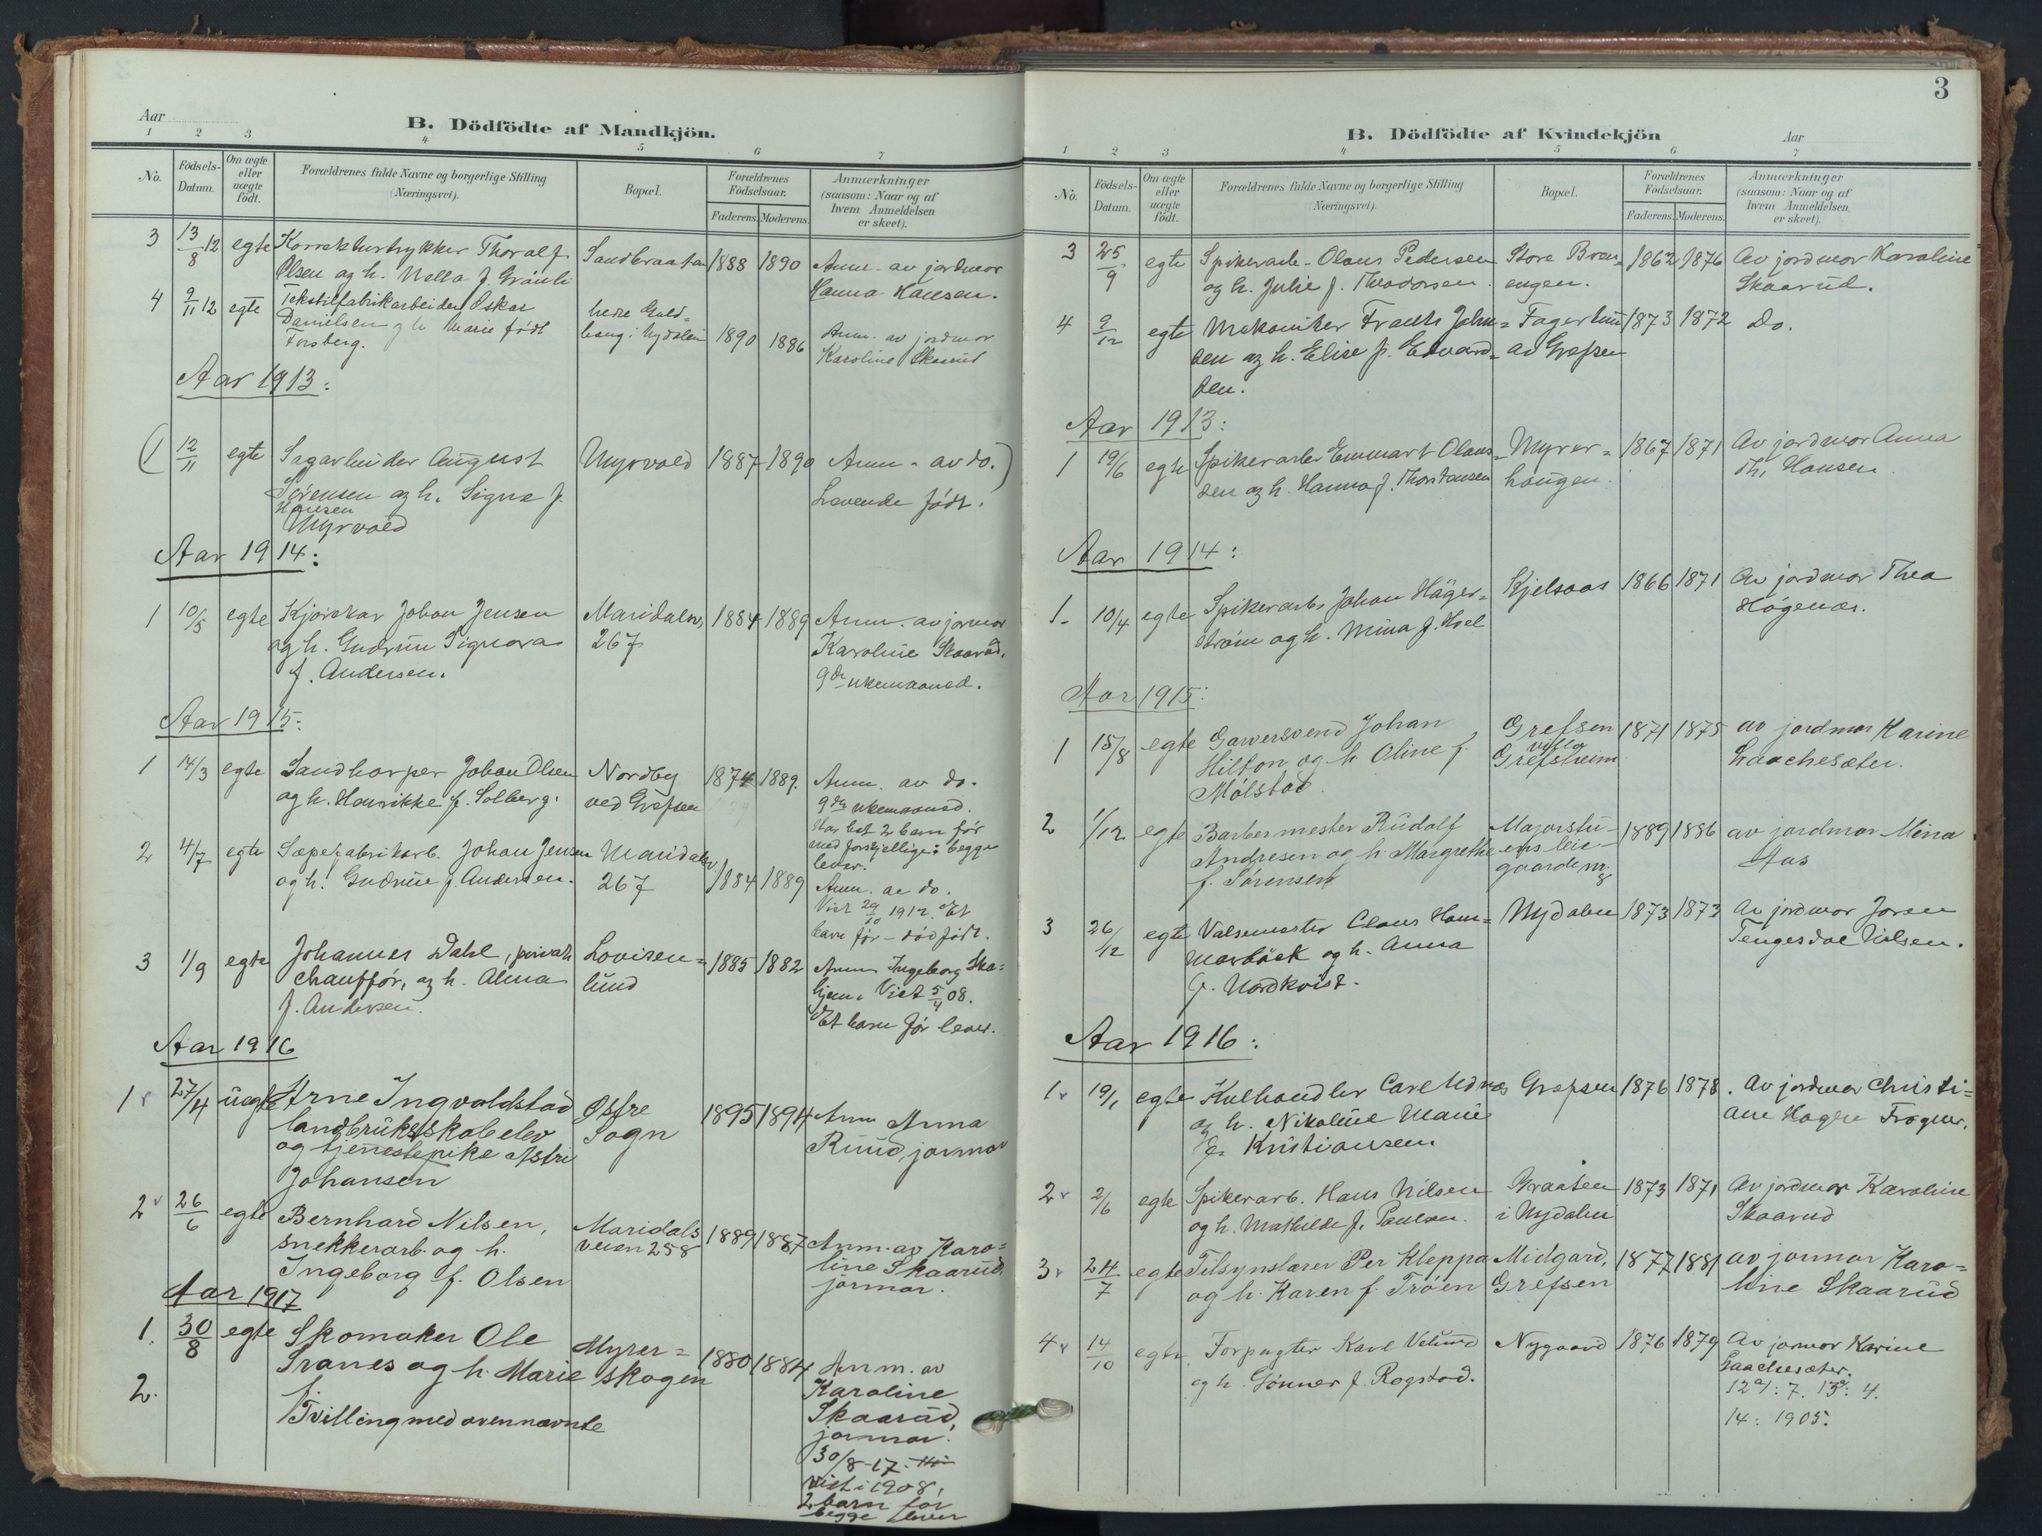 Aar
B. Dödfödte af Mandkjön.
1 2 3 4 5 6 7
No.
Födsels-
Datum.
Om ægte
eller
uægte
födt.
Forældrenes fulde Navne og borgerlige Stilling
(Næringsvei).
Bopæl.
Forældrenes
Födselsaar.
Faderens. Moderens.
Anmærkninger
(saasom: Naar og af
hvem Anmeldelsen
er skeet).
3 13/8 12 egte Korrekturtrykker Thoralf Sandbraaten 1888 1890 Anm. av jordmor
Olsen og h. Nella f. Grønli Hanna Hansen.
4 9/11 12 egte Tekstilfabrikarbeider Oskar
Danielsen og h. Marie født 1890 1886 Anm. av jordmor
Forsberg. Karoline Skarud
Aar 1913:
(1 12/11 egte Sagarbeider August Myrvold 1887 1890 Anm. av do.)
Sørensen og h. Signe f. Levende født.
Hansen
Myrvold
Aar 1914:
1 10/5 egte Kjørekar Johan Jensen Maridalsv. 1884 1889 Anm. av jormor
og h. Gudrun Signora 267 Karoline Skaarud.
f. Andersen. 9de ukemaaned.
Aar 1915:
1 14/3 egte Sandharper Johan Olsen Nordby 1874 1889. Anm. av do.
og h. Henrikke f. Solberg. ved Grefsen 9de ukemaaned.
Har hat 2 barn før
med forskjellige; begge
lever.
2 4/7 egte Sæpefabrikarb. Johan Jensen Maridalsv. 1884 1889
og h. Gudrun f. Andersen. 267 Anm. av do.
Viet 29/10 1912. Et
barn før – dødfødt.
3 1/9 egte Johannes Dahl, privat Lovisen= 1885 1882 Anm. Ingeborg
chauffør, og h. Alma lund Viet 5/4 08.
f. Andersen. Et barn før lever.
Aar 1916
1 27/4 uegte Arne Ingvaldstad Østre 1895 1894 Anm Anna
landbruksskoleelev Sogn Ruud, jormor
og tjenestepike Astri
Johansen
2 26/6 egte Bernhard Nilsen, Maridals 1889 1887 Anm. av Karo=
snekkerarb. og h. veien 258 line Skaarud,
Ingeborg f. Olsen jormor.
Aar 1917
1. 30/8 egte Skomaker Ole Myrer= 1880 1884 Anm. av
Tranes og h. Marie skogen Karoline
2. Tvilling med ovennævnte Skaarud,
jormor.
30/8-17.
Viet i 1908,
2 barn før
begge lever
3
B. Dödfödte af Kvindekjön
Aar
1 2 3 4 5 6 7
No.
Födsels-
Datum.
Om ægte
eller
uægte
födt.
Forældrenes fulde Navne og borgerlige Stilling
Næringsvei).
Bopæl.
Forældrenes
Födselsaar.
Faderens. Moderens.
Anmærkninger
(saasom: Naar og af
hvem Anmeldelsen
er skeet).
3 25/9 egte Spikerarb. Olaus Pedersen Store Bran= 1862 1876 Av jordmor Karoline
og h. Julie f. Theodorsen. engen. Skaarud.
4 9/12 egte Mekaniker Frantz Johan= 1873 1872 do.
sen og h. Elise f. Edvard= av Grefsen
sen.
Aar 1913:
1 19/6 egte Spikerarb. Emmart Olaus= Myrer= 1867 1871 Av jordmor Anna
sen og h. Hanna f. Thorstensen haugen. Th. Hansen.
Aar 1914:
1- 10/4 egte Spikerarb. Johan Häger= Kjelsaas 1866 1871 Av jordmor Thea
strøm og h. Mina f. Hoel Høgenæs.
Aar 1915:
1 15/8 egte Garversvend Johan Grefsen 1871 1875 av jordmor Karine
Hilton og h. Oline f. villa Laachesæter.
Mølstad Grefsheim.
2 1/12 egte Barbermester Rudolf Majorstu= 1889 1886 av jordmor Mina
Andresen og h. Margrethe ens leie- Aas
f. Sørensen gaarde
3 26/12 egte Valsemester Claus Ham= Nydalen 1873 1873 Av jordmor
marbäck og h. Anna Tengesdal Nilsen.
f. Nordkvist.
Aar 1916:
1 19/1 egte Kulhandler Carl Grefsen 1876 1878. Av jordmor Christi=
og h. Nikoline Marie ane Hagen Frogner.
f. Kristiansen
2 2/6 egte Spikerarb. Hans Nilsen Graaten 1873 1871 Av jordmor Karoline
og h. Mathilde f. Paulsen. i Nydalen Skaarud
3 24/7 egte Tilsynslærer Per Kleppa Midgard, 1877 1881 av jormor Karo=
og h. Karen f. Trøen Grefsen line Skaarud
4 14/10 egte Forpagter Karl Nygaard 1876 1879 Av jormor Karine
og h. Gønner f. Rogstad. Laachesæter.
14: 1905.